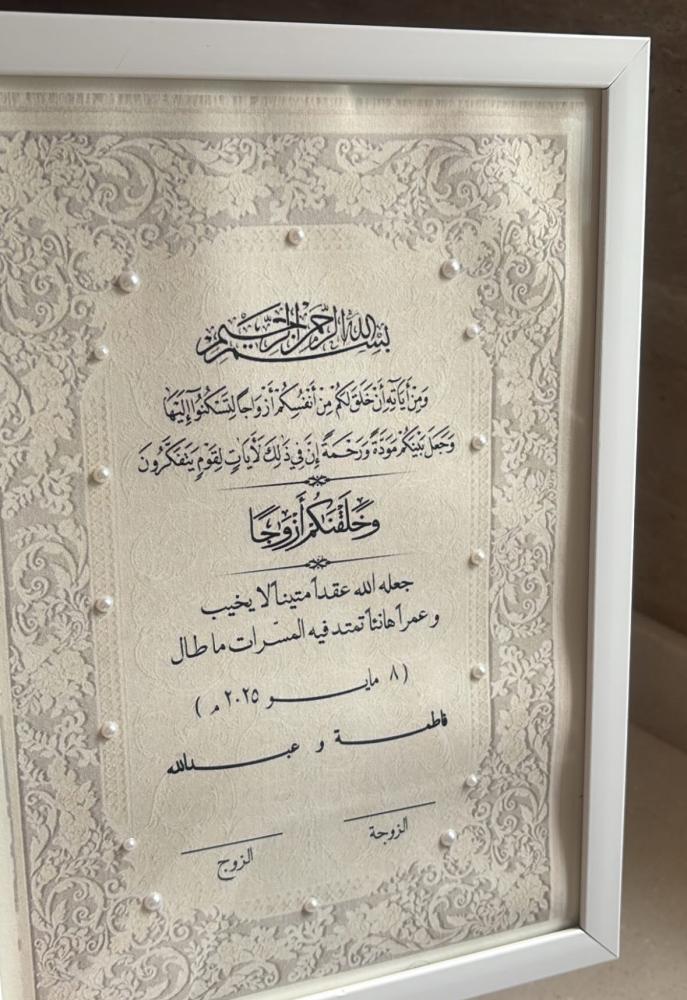 بسم الله الرحمن الرحيم
وَمِنْ أَيَاتِهِ أَنْ خَلَقَ لَكُمْ مِنْ أَنْفُسِكُمْ أَزْوَاجًا لِتَسْكُنُوا إِلَيْهَا
وَجَعَلَ بَيْنَكُمْ مَوَدَّةً وَرَحْمَةً إِنَّ فِي ذَلِكَ لَأَيَاتٍ لِقَوْمٍ يَتَفَكَّرُونَ
وَخَلَقْنَاكُمْ أَزْوَاجًا
جعله الله عقداً متيناً لا يخيب
وعمراً هانئاً تمتد فيه المسرّات ما طال
(٨ مايـــو ٢٠٢٥ م)
فاطمـــة و عبـــدالله
الزوجة
الزوج